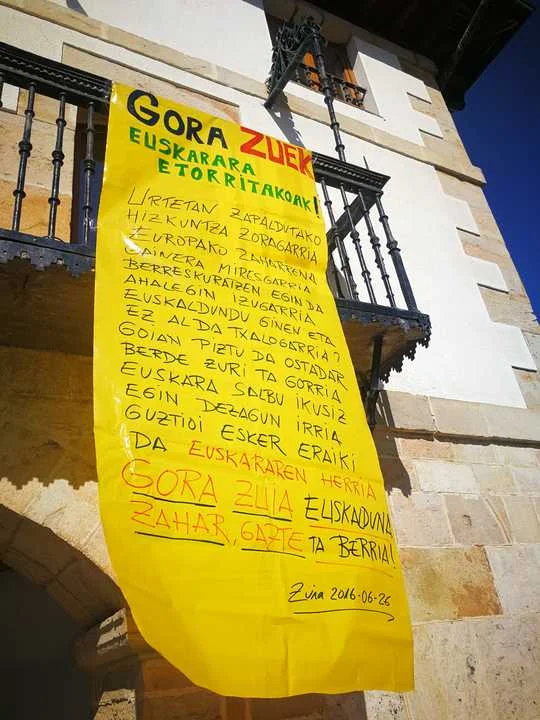 GORA ZUEK
EUSKARARA
ETORRITAKOAK!
URTETAN ZAPALDUTAKO
HIZKUNTZA ZORAGARRIA
EUROPAKO ZAHARRENA
GAINERA MIRESGARRIA
BERRESKURATZEN EGIN DA
AHALEGIN IZUGARRIA
EUSKALDUNDU GINEN ETA
EZ AL DA TXALOGARRIA?
GOIAN PIZTU DA OSTADAR
BERDE ZURI TA GORRIA
EUSKARA SALBU IKUSIZ
EGIN DEZAGUN IRRIA
GUZTIOI ESKER ERAIKI
DA EUSKARAREN HERRIA
GORA ZUIA EUSKALDUNA
ZAHAR, GAZTE TA BERRIA!
Zuia 2016-06-26